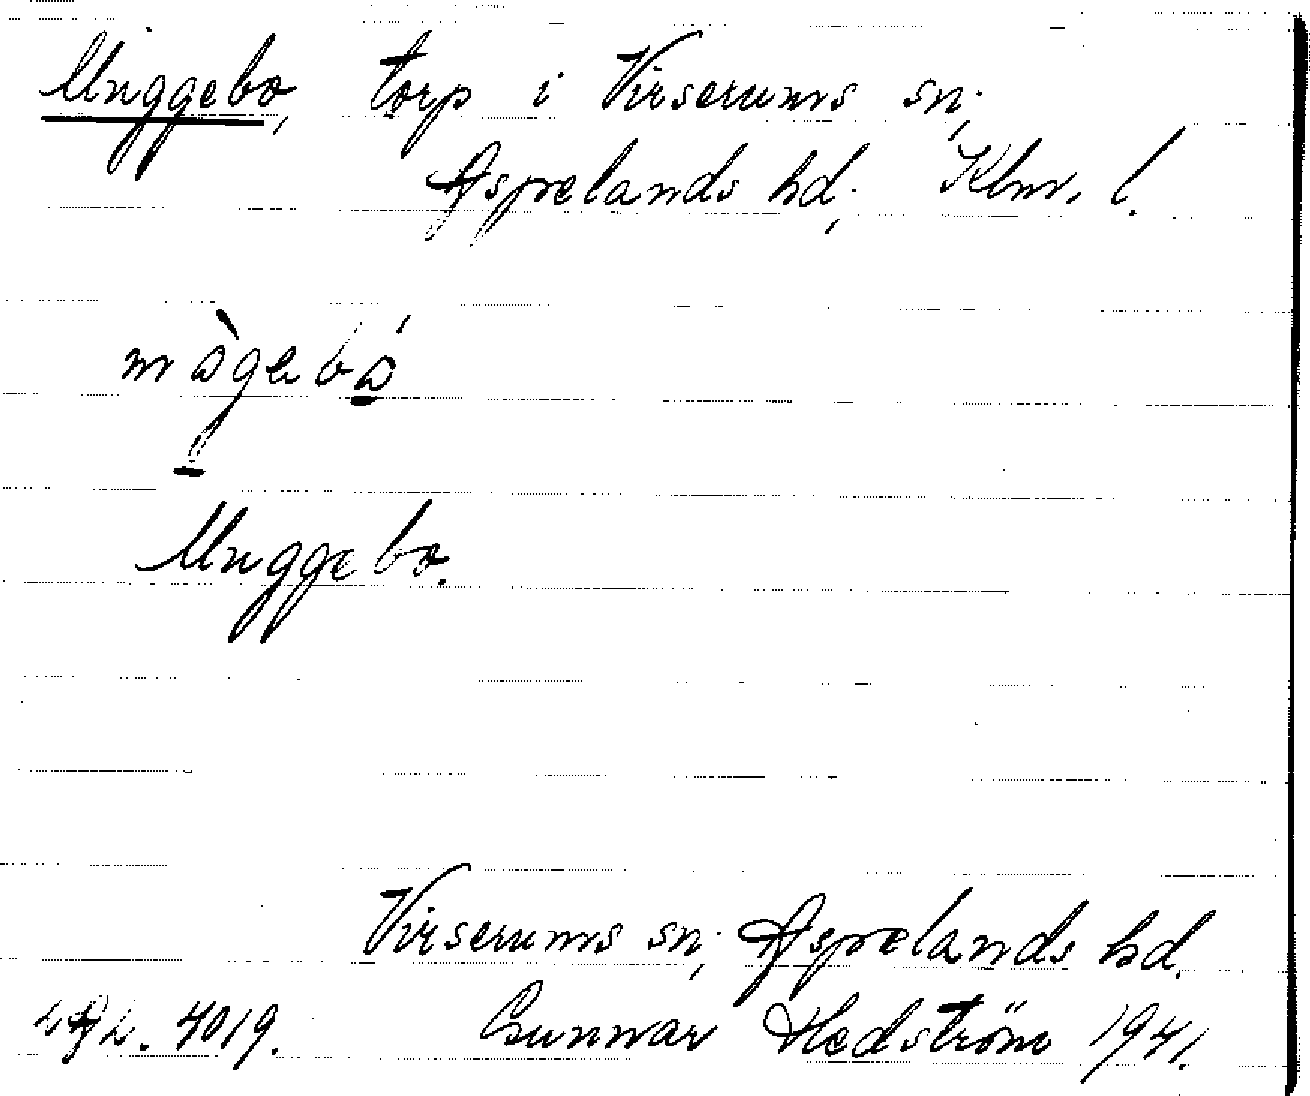 Muggebo, torp i Virserums sn,
Aspelands hd, Klm. l.
Muggebo.
Virserums sn, Aspelands hd.
4019. Gunnar Hedström 1941.